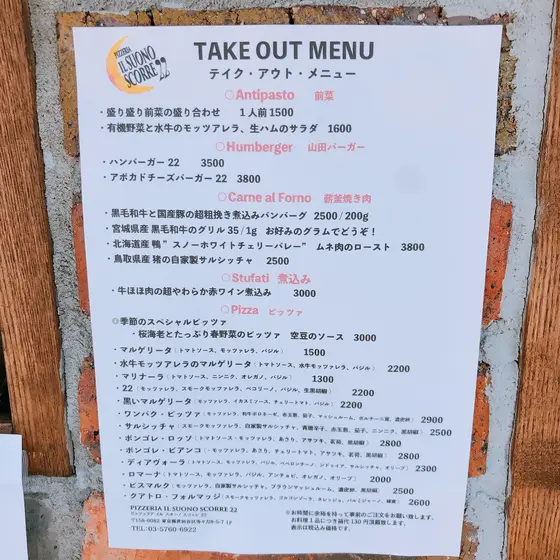 PIZZERIA
IL SUONO
SCORRE 22
TAKE OUT MENU
テイク・アウト・メニュー
○Antipasto 前菜
・盛り盛り前菜の盛り合わせ 1人前1500
・有機野菜と水牛のモッツアレラ、生ハムのサラダ 1600
○Humberger 山田バーガー
・ハンバーガー22 3500
・アボカドチーズバーガー22 3800
○Carne al Forno 薪釜焼き肉
・黒毛和牛と国産豚の超粗挽き煮込みハンバーグ 2500/200g
・宮城県産 黒毛和牛のグリル 35/1g お好みのグラムでどうぞ!
・北海道産 鴨”スノーホワイトチェリーバレー” ムネ肉のロースト 3800
・鳥取県産 猪の自家製サルシッチャ 2500
○Stufati 煮込み
・牛ほほ肉の超やわらか赤ワイン煮込み 3000
○Pizza ピッツァ
◎季節のスペシャルピッツァ
・桜海老とたっぷり春野菜のピッツァ 空豆のソース 3000
・マルゲリータ(トマトソース、モッツァレラ、バジル) 1500
・水牛モッツアレラのマルゲリータ(トマトソース、水牛モッツァレラ、バジル) 2200
・マリナーラ(トマトソース、ニンニク、オレガノ、バジル) 1300
・22(モッツァレラ、スモークモッツァレラ、ペコリーノ、バジル、生黒胡椒) 2200
・黒いマルゲリータ(モッツァレラ、イカスミソース、チェリートマト、バジル) 2200
・ワンパク・ピッツァ(モッツァレラ、和牛ボロネーゼ、赤玉葱、茄子、マッシュルーム、ポルチーニ茸、温泉卵) 2900
・サルシッチャ(スモークモッツァレラ、自家製サルシッチャ、青唐辛子、赤玉葱、茄子、ニンニク、黒胡椒) 2500
・ボンゴレ・ロッソ(トマトソース、モッツァレラ、あさり、アサツキ、玄菊、黒胡椒) 2800
・ボンゴレ・ビアンコ(モッツァレラ、あさり、チェリートマト、アサツキ、玄菊、黒胡椒) 2800
・ディアヴォーラ(トマトソース、モッツァレラ、バジル、ペペロンチーノ、ンドゥイヤ、サルシッチャ、オリーブ) 2300
・ロマーナ(トマトソース、モッツァレラ、バジル、アンチョビ、オレガノ、オリーブ) 2000
・ビスマルク(モッツァレラ、自家製サルシッチャ、ブラウンマッシュルーム、温泉卵、黒胡椒) 2500
・クアトロ・フォルマッジ(スモークモッツァレラ、ゴルゴンゾーラ、タレッジョ、パルミジャーノ、蜂蜜) 2600
PIZZERIA IL SUONO SCORRE 22
ピッツェリア イル スオーノ スコッレ 22
〒158-0082 東京都世田谷区等々力8-5-7 1F
TEL: 03-5760-6922
※お時間に余裕を持って事前のご注文をお願い致します。
お料理1品につき箱代130円頂戴致します。
表示は税込み価格です。